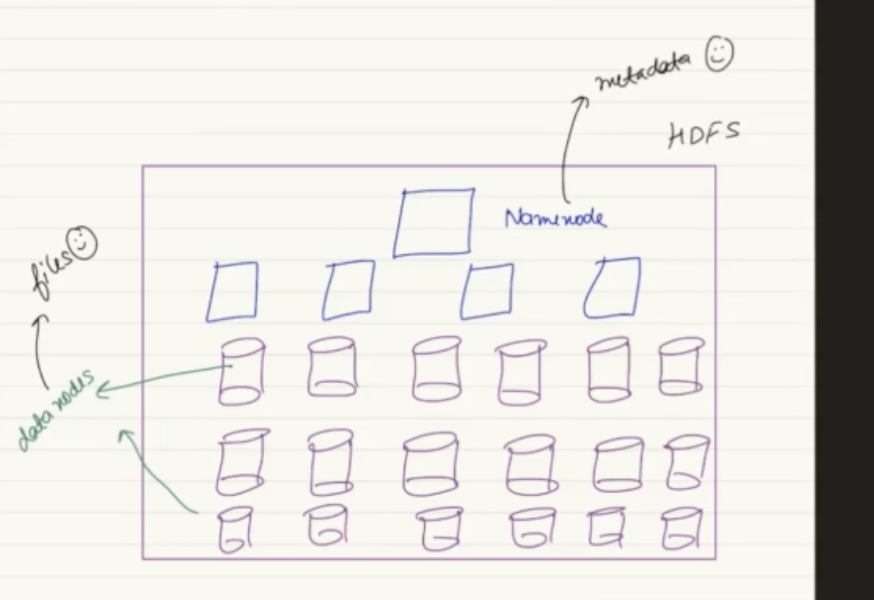 metadata
HDFS
Namenode
files
data nodes